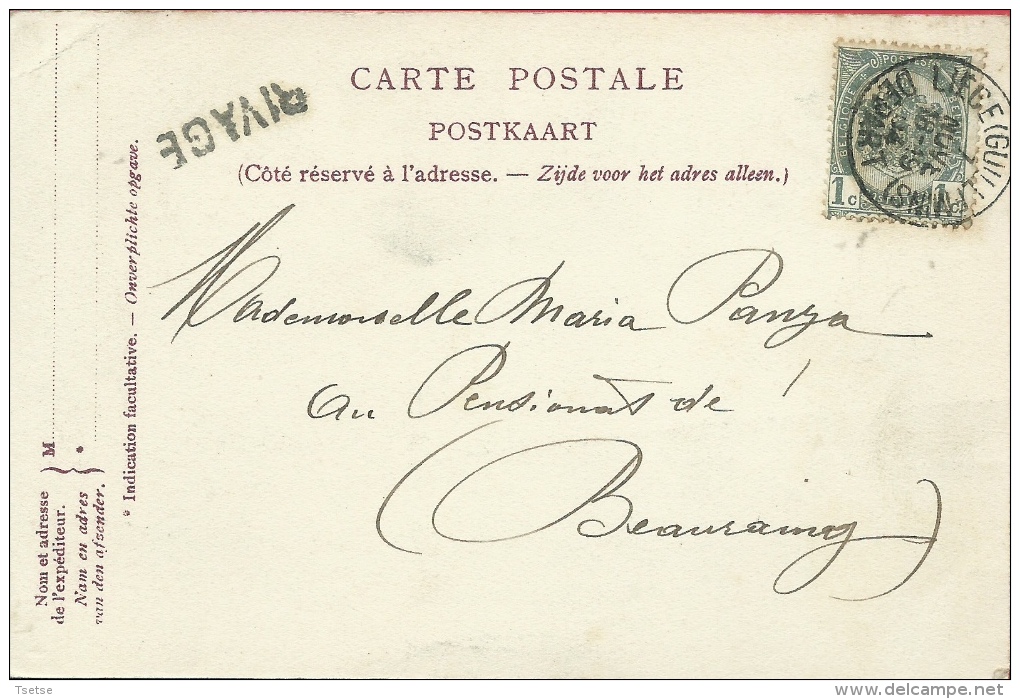 CARTE POSTALE
POSTKAART
(Côté réservé à l'adresse. — Zijde voor het adres alleen.)
RIVAGE
BELGIQUE
1c
LIEGE (GUILLEMINS)
DEPART
Mademoiselle Maria Panza
au Pensionat de
(Beauraing)
M
*
Nom et adresse
de l'expéditeur.
Nam en adres
van den afzender.
* Indication facultative. — Onverplichte opgave.
Tsetse
www.delcampe.net